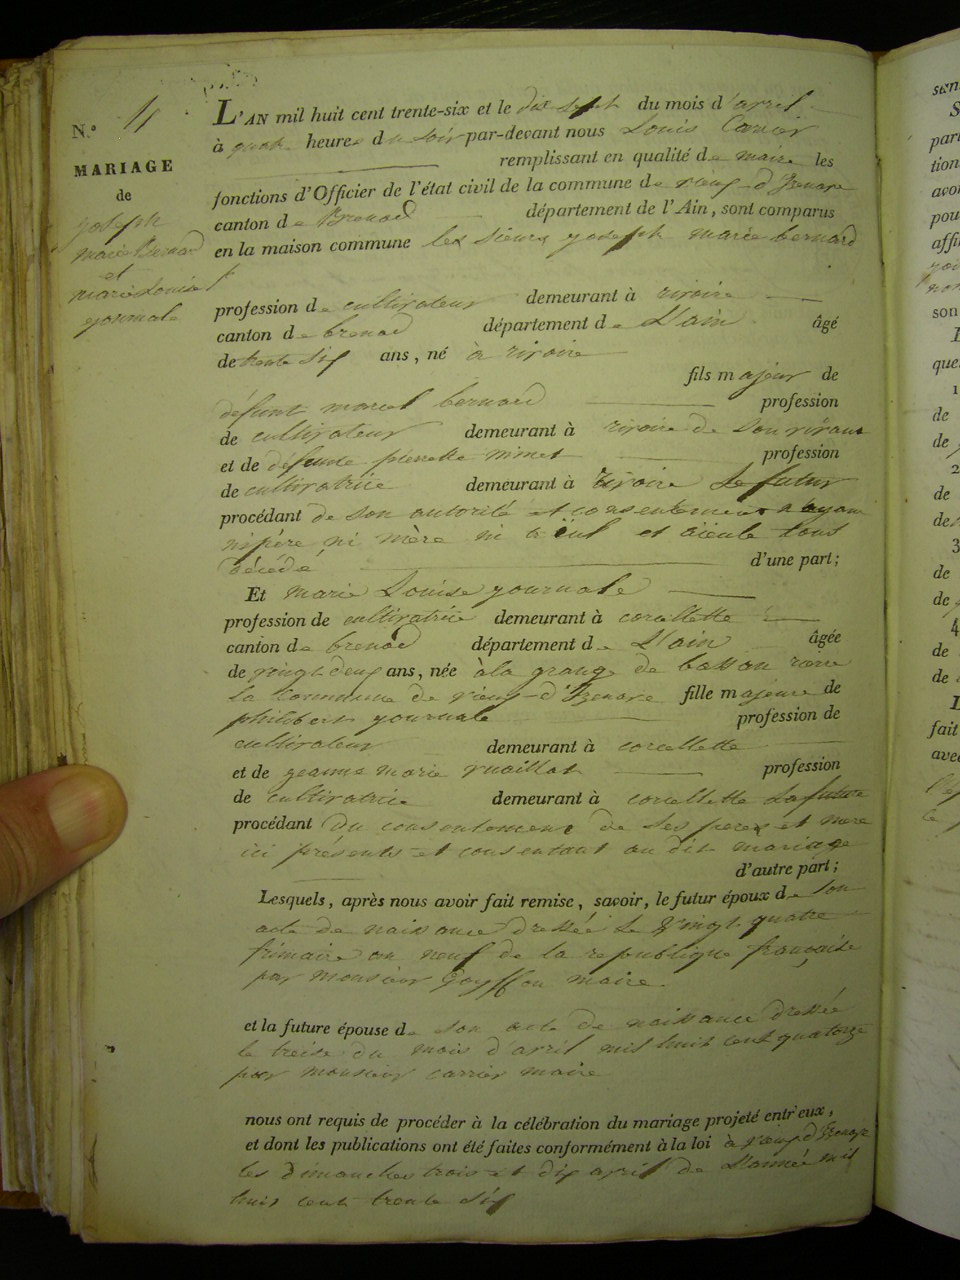 N.° 4
MARIAGE
de
joseph
marie Bernard
et
marie Louise
yournale
L'AN mil huit cent trente-six et le dix sept du mois d'avril
à quatre heures du soir par-devant nous Louis Carrier
remplissant en qualité de maire les
fonctions d'Officier de l'état civil de la commune de vieux-d'Izenave
canton de Brenod département de l'Ain, sont comparus
en la maison commune les sieurs yoseph marie bernard
profession de cultivateur demeurant à rivoire
canton de brenod département de L'ain âgé
de trente six ans, né à rivoire
fils majeur de
défunt marcel bernard profession
de cultivateur demeurant à rivoire de son vivant
et de défunte pierrette minet profession
de cultivatrice demeurant à rivoire Le futur
procédant de son autorité et consentement n'ayant
ni père ni mère ni aïeul et aïeule tous
décédé d'une part;
Et marie Louise yournale
profession de cultivatrice demeurant à corcellette
canton de brenod département de L'ain âgée
de vingt deux ans, née à la grange de
La Commune de vieux-d'Izenave fille majeure de
philibert yournale profession de
cultivateur demeurant à corcellette
et de jeanne marie ruaillat profession
de cultivatrice demeurant à corcellette La future
procédant du consentement de ses peres et mere
ici présents et consentant au dit mariage
d'autre part;
Lesquels, après nous avoir fait remise, savoir, le futur époux de son
acte de naissance dressée le vingt quatre
frimaire an neuf de la republique française
par monsieur Goyffon maire.
et la future épouse de son acte de naissance dressée
le treise du mois d'avril mil huit cent quatorze
par monsieur carrier maire
nous ont requis de procéder à la célébration du mariage projeté entr'eux,
et dont les publications ont été faites conformément à la loi à vieux d'Izenave
les dimanches trois et dix avril de L'année mil
huit cent trente six